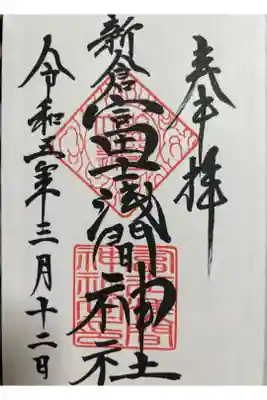 奉拝
新倉富士浅間神社
令和五年三月十二日